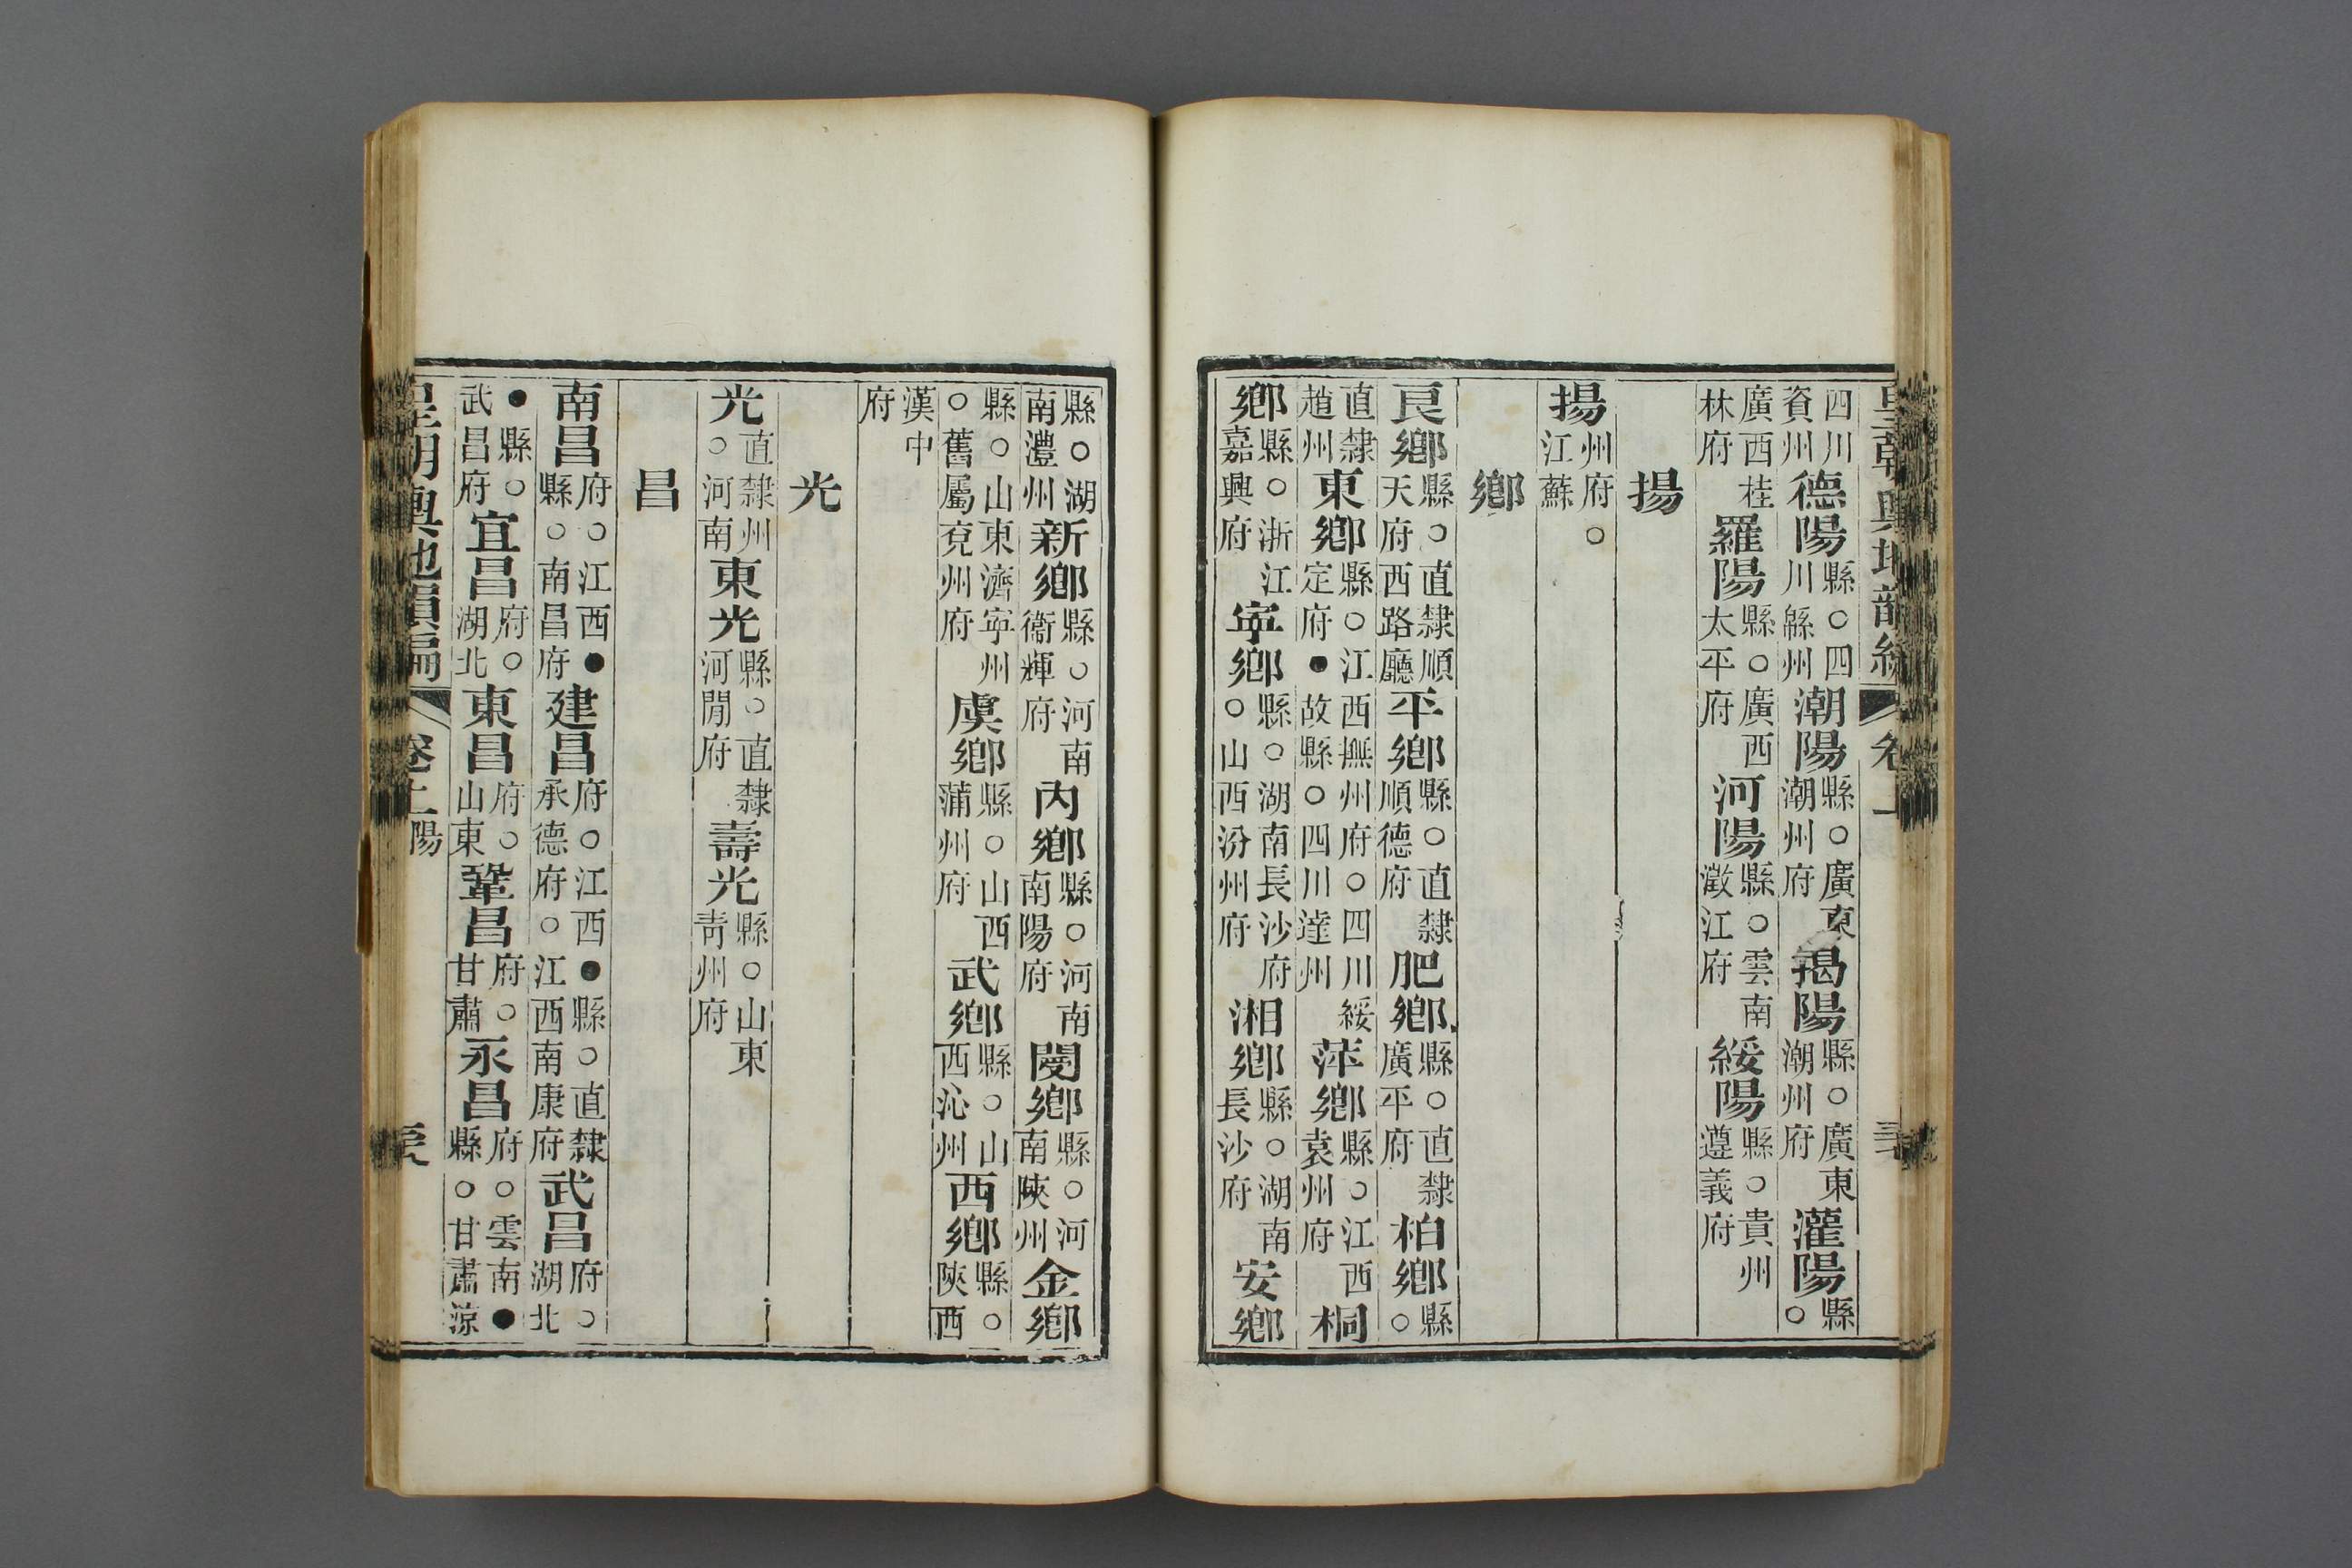 皇朝輿地韻編
四川資州德陽縣○四川緜州潮陽縣○廣東潮州府揭陽縣○廣東潮州府灌陽縣○
廣西桂林府羅陽縣○廣西太平府河陽縣○雲南澂江府綏陽縣○貴州遵義府
揚
揚州府○江蘇
鄉
良鄉縣○直隸順天府西路廳平鄉縣○直隸順德府肥鄉縣○直隸廣平府柏鄉縣○
直隸趙州東鄉縣○江西撫州府○四川綏定府●故縣○四川達州萍鄉縣○江西袁州府桐
鄉縣○浙江嘉興府寧鄉縣○湖南長沙府○山西汾州府湘鄉縣○湖南長沙府安鄉
縣○湖南澧州新鄉縣○河南衞輝府內鄉縣○河南南陽府閿鄉縣○河南陝州金鄉
縣○山東濟寧州○舊屬兗州府虞鄉縣○山西蒲州府武鄉縣○山西沁州西鄉縣○陝西
漢中府
光
光直隸州○河南東光縣○直隸河閒府壽光縣○山東靑州府
昌
南昌府○江西●縣○南昌府建昌府○江西●縣○直隸承德府○江西南康府武昌府○湖北
●縣○武昌府宜昌府○湖北東昌府○山東鞏昌府○甘肅永昌府○雲南●縣○甘肅涼
皇朝輿地韻編 陽